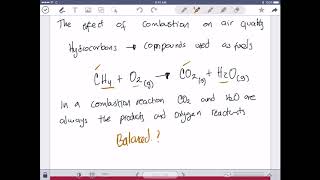 The effect of combustion on air quality
Hydrocarbons → compounds used as fuels
CH4 + O2(g) → CO2(g) + H2O(g)
In a combustion reaction CO2 and H2O are
always the products and oxygen reactants
Balanced?